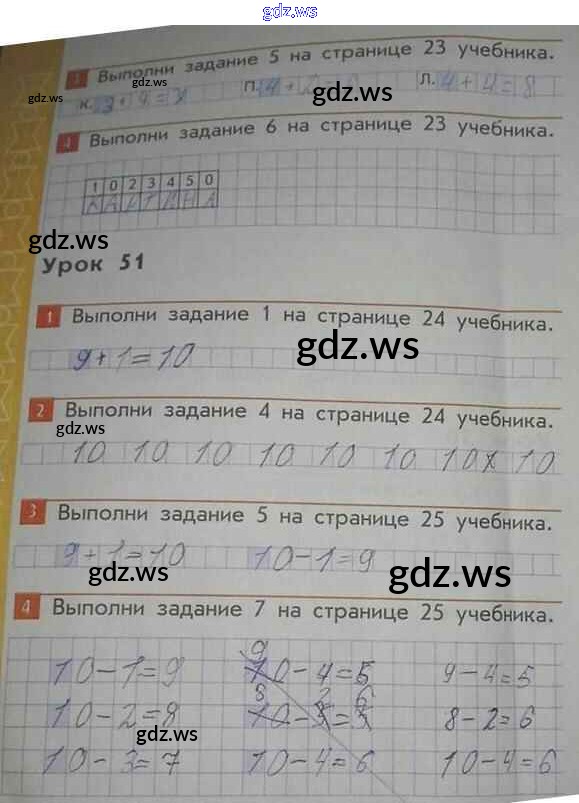 gdz.ws
3 Выполни задание 5 на странице 23 учебника.
gdz.ws к. П. gdz.ws Л. 4+4=8
4 Выполни задание 6 на странице 23 учебника.
1 0 2 3 4 5 0
gdz.ws
Урок 51
1 Выполни задание 1 на странице 24 учебника.
9+1=10 gdz.ws
2 Выполни задание 4 на странице 24 учебника.
gdz.ws
10 10 10 10 10 10 10 10
3 Выполни задание 5 на странице 25 учебника.
9+1=10 10-1=9
gdz.ws gdz.ws
4 Выполни задание 7 на странице 25 учебника.
10-1=9 10-4=5 9-4=5
10-2=8 8-2=6
gdz.ws
10-3=7 10-4=6 10-4=6